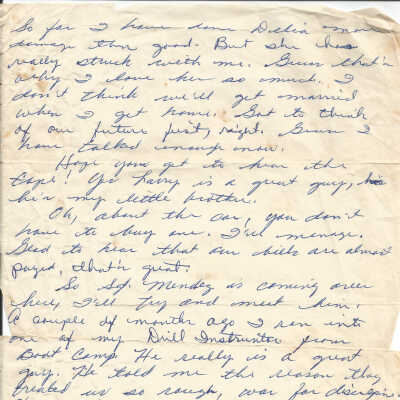 So far I have done Delia more
damage than good. But she has
really stuck with me. Guess that's
why I love her so much. I
don't think we'll get married
when I get home. Got to think
of our future first, right. Guess I
have talked enough now.
Hope you get to hear the
tape! Yes Harry is a great guy,
he's my little brother.
Oh, about the car, you don't
have to buy one. I'll manage.
Glad to hear that our bills are almost
payed, that's great.
So Sgt. Mendez is coming over
here, I'll try and meet him.
A couple of months ago I ran into
one of my Drill Instructor from
Boot Camp. He really is a great
guy. He told me the reason they
treated us so rough, was for discipline.